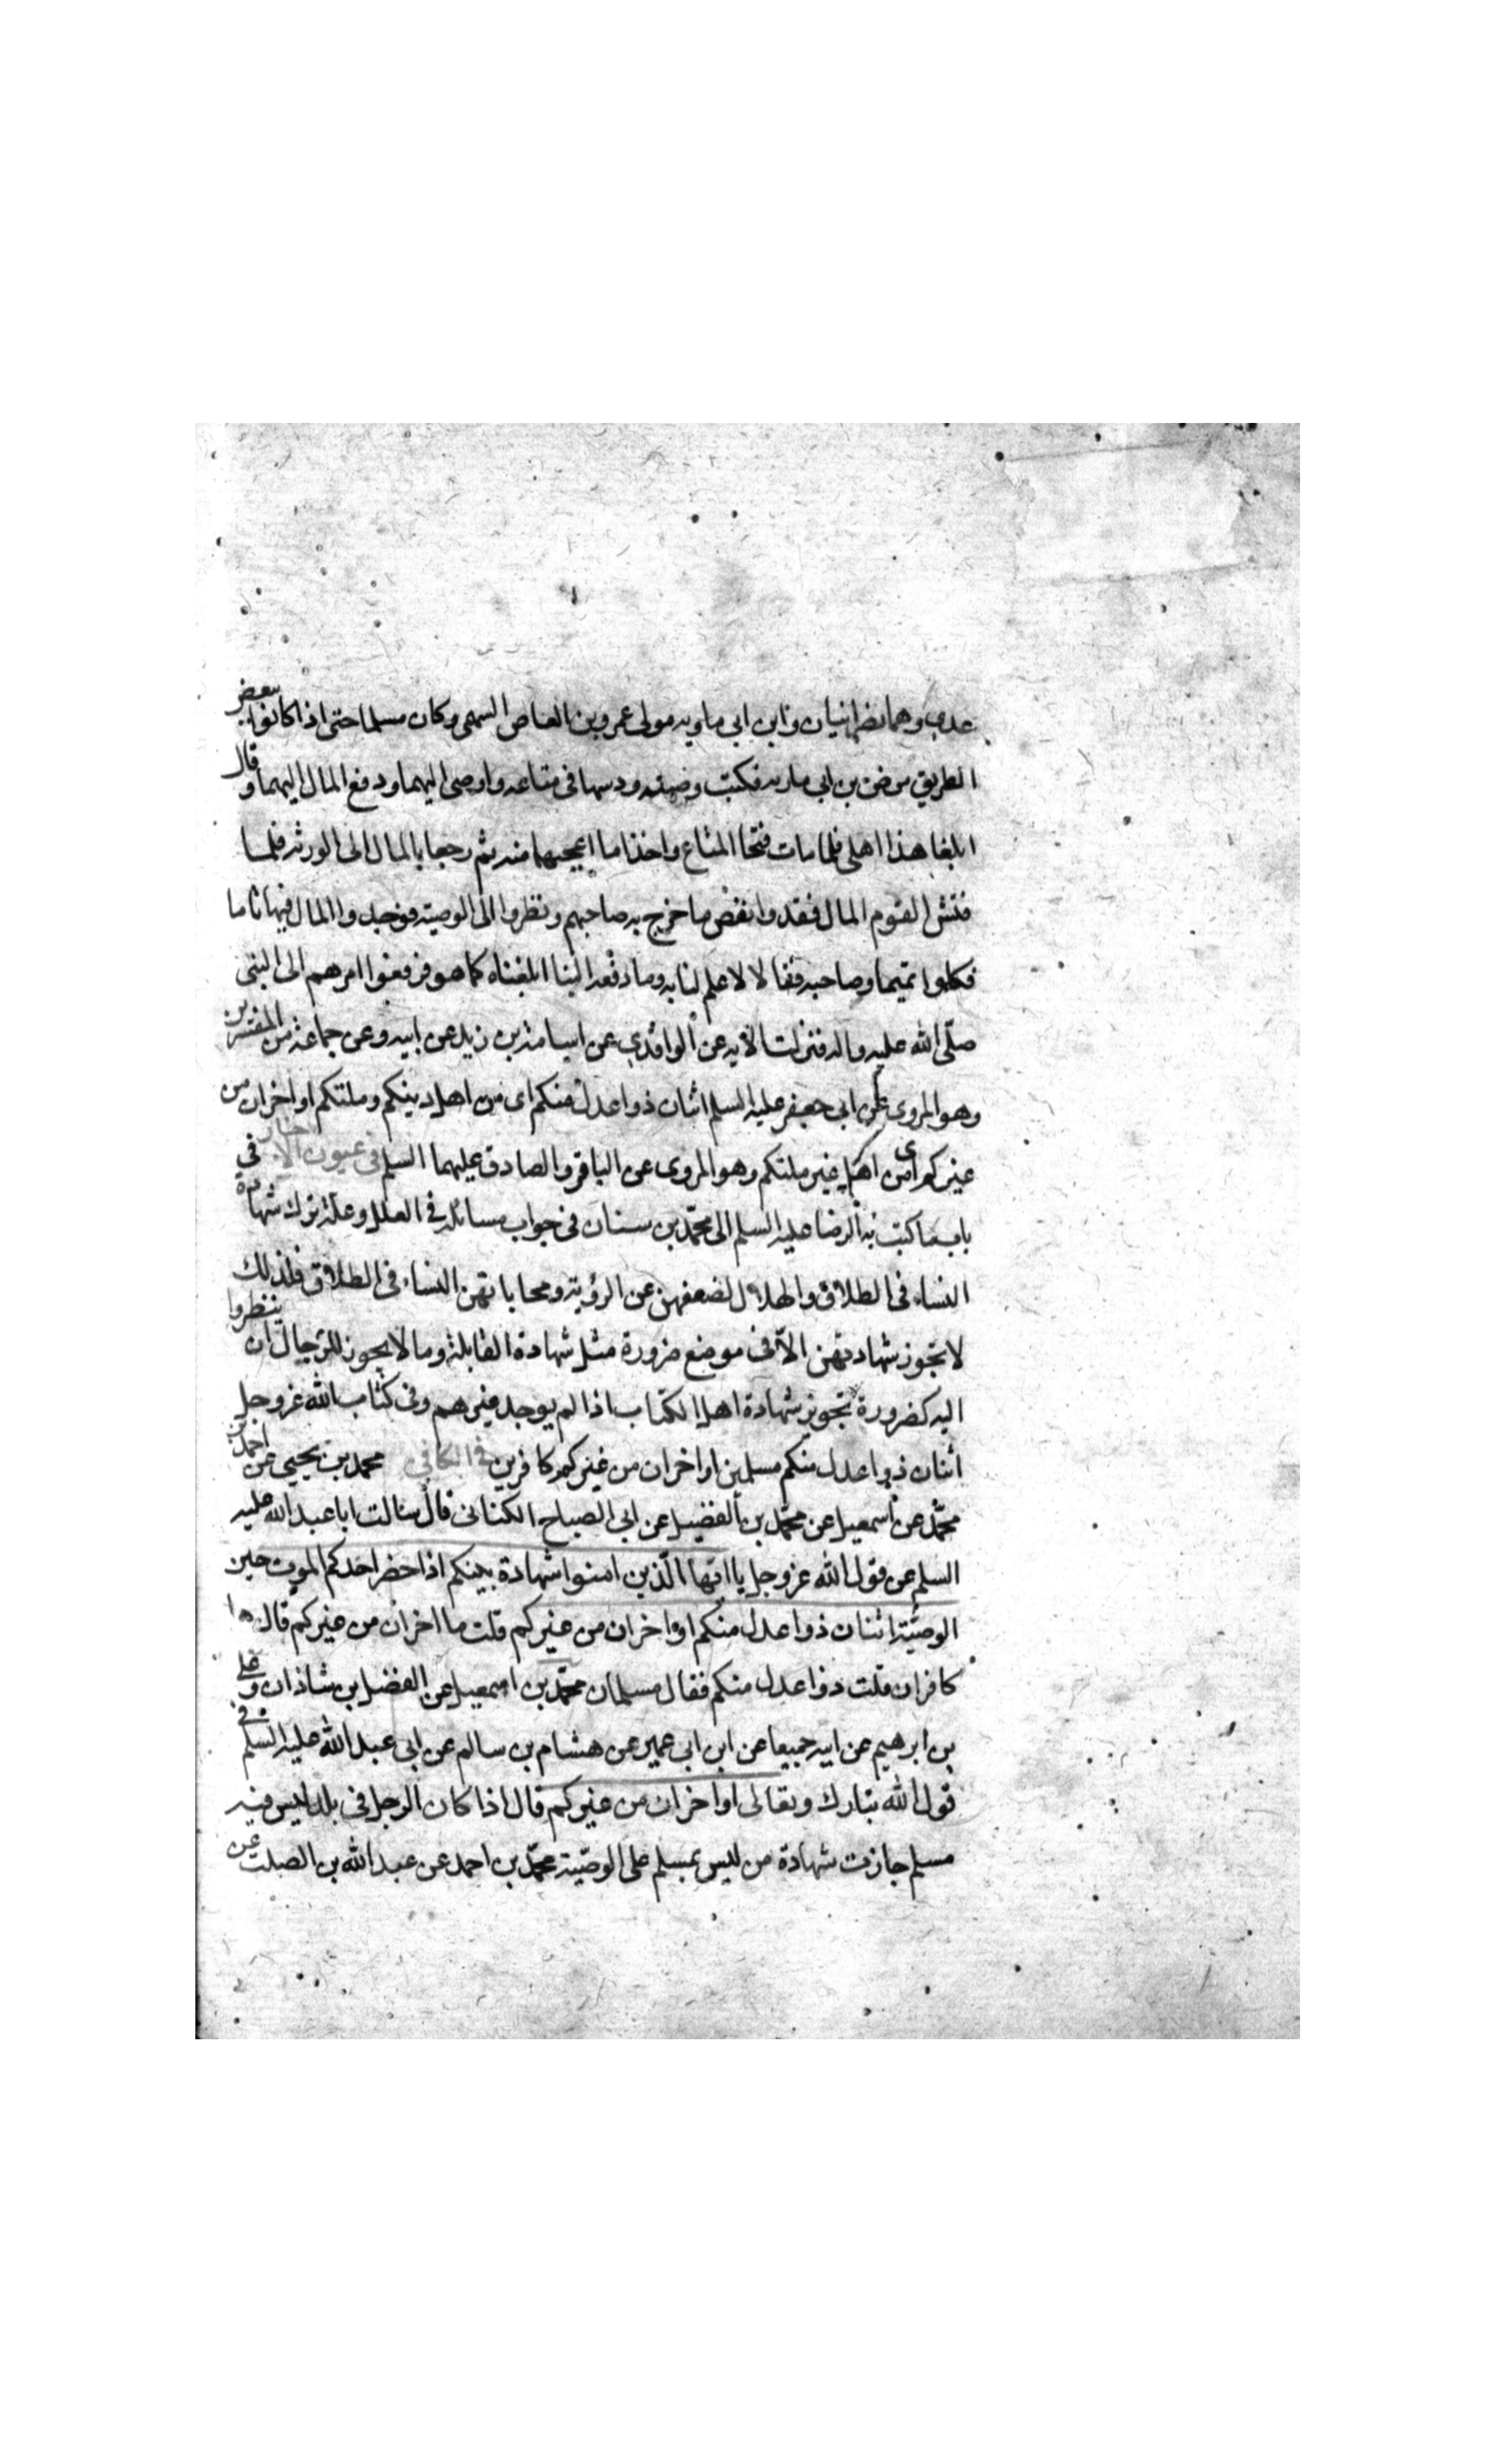 عدي وهما نصرانيان وابن ابي ماويه مولى عمرو بن العاص السهمي وكان مسلما حتى اذا كانوا ببعض
الطريق مرض بن ابي ماريه فكتب وصيته ودسها في متاعه واوصى اليهما ودفع المال اليهما وقال
ابلغا هذا اهلي فلما مات فتحا المتاع واخذا ما اعجبهما منه ثم رجعا بالمال الى الورثه فلما
فتش القوم المال فقدوا بعض ما خرج به صاحبهم ونظروا الى الوصيته فوجدوا المال فيها تاما
فكلموا تميما وصاحبه فقالا لا علم لنا به وما دفعه الينا ابلغناه كما هو فرفعوا امرهم الى النبي
صلّى الله عليه واله فنزلت الايه عن الواقدي عن اسامة بن زيد عن ابيه وعن جماعة من المفسرين
وهو المروى عن ابي جعفر عليه السلم اثنان ذوا عدل منكم اى من اهل دينكم وملتكم او اخران من
غيركم اى من اهل غير ملتكم وهو المروى عن الباقر والصادق عليهما السلم في عيون الاخبار في
باب ما كتب به الرضا عليه السلم الى محمّد بن سنان في جواب مسائله في العلل وعلة ترك شهادة
النساء في الطلاق والهلال لضعفهن عن الرؤية ومحاباتهن النساء في الطلاق فلذلك
لا تجوز شهادتهن الاّ في موضع ضرورة مثل شهادة القابلة وما لا يجوز للرّجال ان ينظروا
اليه كضرورة تجويز شهادة اهل الكتاب اذا لم يوجد غيرهم وفي كتاب الله عزوجل
اثنان ذوا عدل منكم مسلمين او اخران من غيركم كافرين في الكافي محمد بن يحيى عن احمد بن
محمّد عن اسمعيل عن محمّد بن الفضيل عن ابي الصباح الكناني قال سالت ابا عبد الله عليه
السلم عن قول الله عزوجل يا ايّها الّذين امنوا شهادة بينكم اذا حضر احدكم الموت حين
الوصيّة اثنان ذوا عدل منكم او اخران من غيركم قلت ما اخران من غيركم قال هما
كافران قلت ذوا عدل منكم فقال مسلمان محمّد بن اسمعيل عن الفضل بن شاذان وعلي
بن ابرهيم عن ابيه جميعا عن ابن ابي عمير عن هشام بن سالم عن ابي عبد الله عليه السّلم في
قول الله تبارك وتعالى او اخران من غيركم قال اذا كان الرجل في بلد ليس فيه
مسلم جازت شهادة من ليس بمسلم على الوصيّة محمّد بن احمد عن عبد الله بن الصلت عن